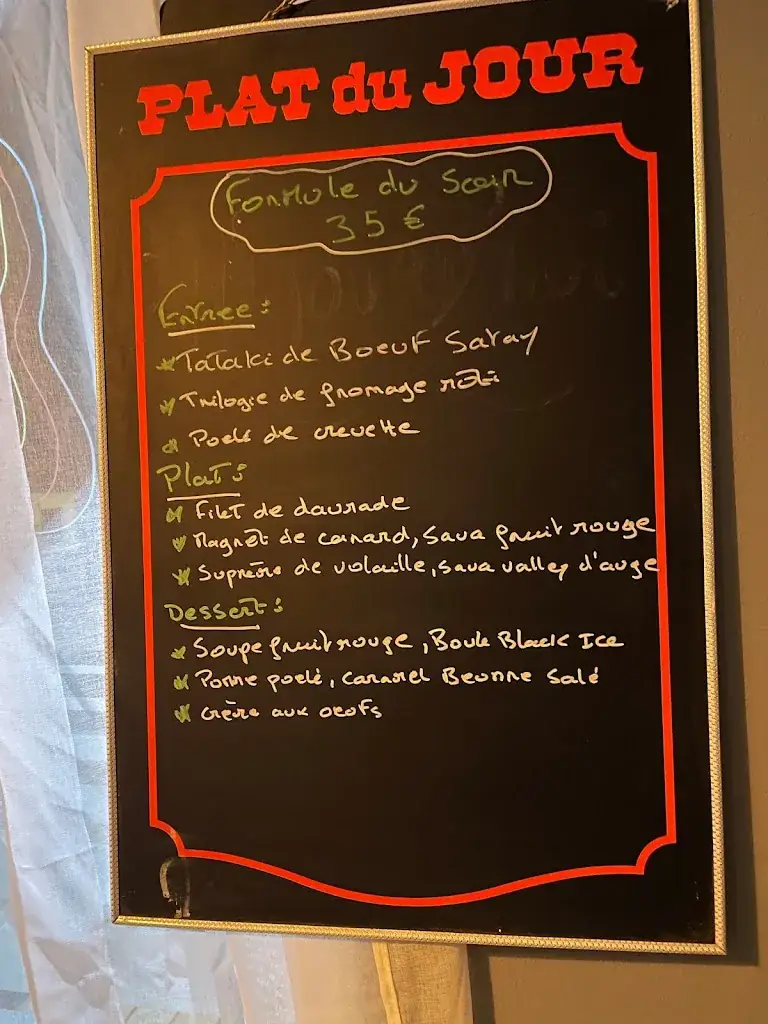 PLAT du JOUR
Formule du Soir
35 €
Entree :
Tataki de Boeuf Satay
Trilogie de fromage roti
Poelé de crevette
Plat :
Filet de daurade
Magret de canard, Sauce fruit rouge
Suprême de volaille, sauce valley d'auge
Dessert :
Soupe fruit rouge, Boule Black Ice
Pomme poelé, caramel Beurre Salé
Crème aux oeufs